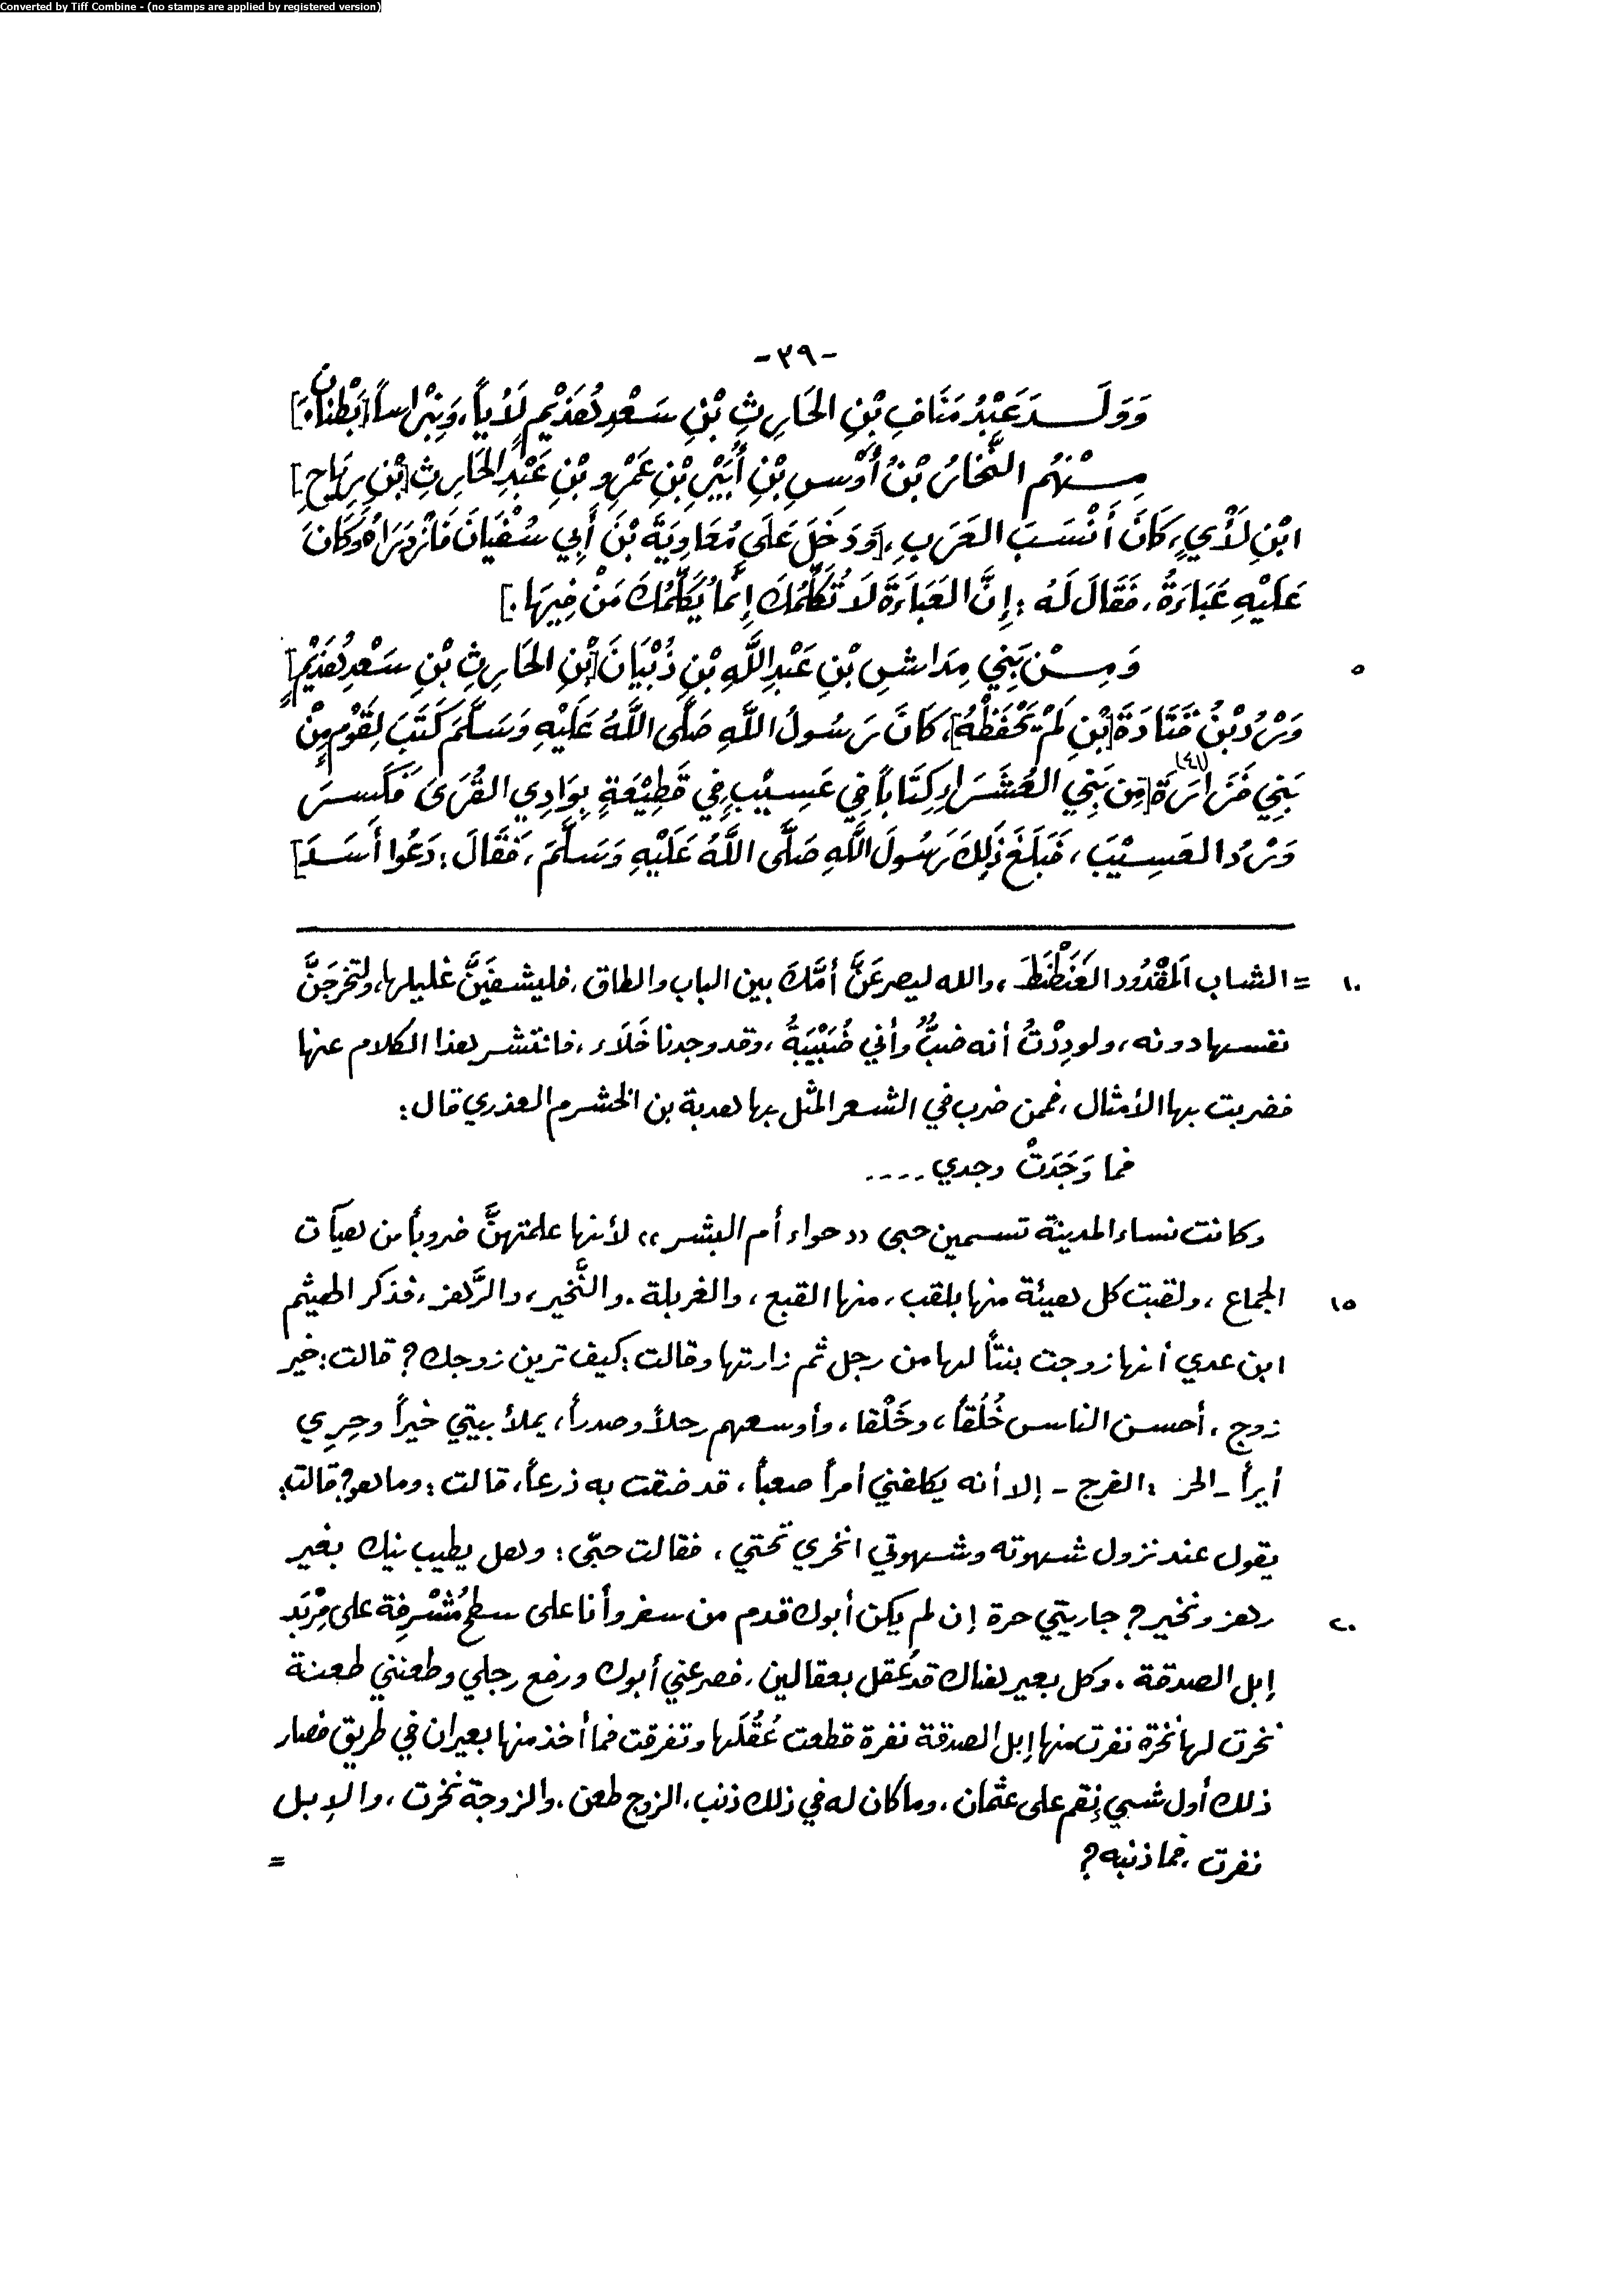 Converted by Tiff Combine - (no stamps are applied by registered version)
-٣٩-
وَوَلَـــدَ عَبْدُ مَنَافِ بْنِ الحَارِثِ بْنِ سَعْدِ هُذَيْمٍ لَأْياً، وَنِبْرَاساً [بَطْنَانِ.]
مِـــنْهُم النَّخَّارُ بْنُ أَوْسِ بْنِ أُبَيْرِ بْنِ عَمْرِو بْنِ عَبْدِ الحَارِثِ [بْنِ رِيَاحِ]
ابْنِ لَأْيٍ، كَانَ أَنْسَبَ العَرَبِ، [وَدَخَلَ عَلَى مُعَاوِيَةَ بْنَ أَبِي سُفْيَانَ فَازْدَرَاهُ وَكَانَ
عَلَيْهِ عَبَاءَةٌ، فَقَالَ لَهُ : إِنَّ العَبَاءَةَ لَا تُكَلِّمُكَ إِنَّمَا يُكَلِّمُكَ مَنْ فِيهَا.]
وَمِـــنْ بَنِي مِدَاشِ بْنِ عَبْدِ اللَّهِ بْنِ ذُبْيَانَ [بْنِ الحَارِثِ بْنِ سَعْدِ هُذَيْمٍ]
٥
وَرْدُ بْنُ قَتَادَةَ [بْنِ لَمْ يَحْفَظْهُ]، كَانَ رَسُولُ اللَّهِ صَلَّى اللَّهُ عَلَيْهِ وَسَلَّمَ كَتَبَ لِقَوْمٍ مِنْ
بَنِي فَزَارَةَ [مِن بَنِي العُشَرَاءِ كِتَاباً فِي عَسِيْبٍ فِي قَطِيْعَةٍ بِوَادِي القُرَى فَكَسَرَ
وَرْدُ العَسِيْبَ، فَبَلَغَ ذَلِكَ رَسُولَ اللَّهِ صَلَّى اللَّهُ عَلَيْهِ وَسَلَّمَ، فَقَالَ : دَعُوا أَسَدَ]
١٠ = الشاب المَقْدُود العَنَطْنَطَ، والله ليصرعَنَّ أمَّكَ بين الباب والطاق، فليشفَيَنَّ غليلها، ولتخرجَنَّ
نفسها دونه، ولودِدْتُ أنه ضبٌّ وأني ضُبَيْبَةٌ، وقد وجدنا خَلَاء، فانتشر هذا الكلام عنها
فضربت بها الأمثال، فممن ضرب في الشعر المثل بها هدبة بن الخشرم العذري قال :
فما وَجَدَتْ وجدي ....
وكانت نساء المدينة تسمين حبى «حواء أم البشر» لأنها علمتهنَّ ضروباً من هيآت
١٥ الجماع، ولقبت كل هيئة منها بلقب، منها القبع، والغربلة، والنَّخير، والرَّهز، فذكر الهيثم
ابن عدي أنها زوجت بنتاً لها من رجل ثم زارتها وقالت : كيف ترين زوجك؟ قالت : خير
زوج، أحسن الناس خُلُقاً، وخَلْقا، وأوسعهم رحلاً وصدراً، يملأ بيتي خيراً وحِرِي
أيراً - الحر : الفرج - إلا أنه يكلفني أمراً صعباً، قد ضقت به ذرعاً، قالت : وما هو؟ قالت :
يقول عند نزول شهوته وشهوتي انخري تحتي، فقالت حبّى : وهل يطيب نيك بغير
٢٠ رهز ونخير؟ جاريتي حرة إن لم يكن أبوك قدم من سفر وأنا على سطح مُشْرِفة على مِرْبَد
إبل الصدقة، وكل بعير هناك قد عُقل بعقالين، فصرعني أبوك ورفع رجلي وطعنني طعنة
نخرت لها نخرة نفرت منها إبل الصدقة نفرة قطعت عُقُلَها وتفرقت فما أخذ منها بعيران في طريق فصار
ذلك أول شيئ نِقم على عثمان، وما كان له في ذلك ذنب، الزوج طعن، والزوجة نخرت، والإبل
نفرت، فما ذنبه؟
=